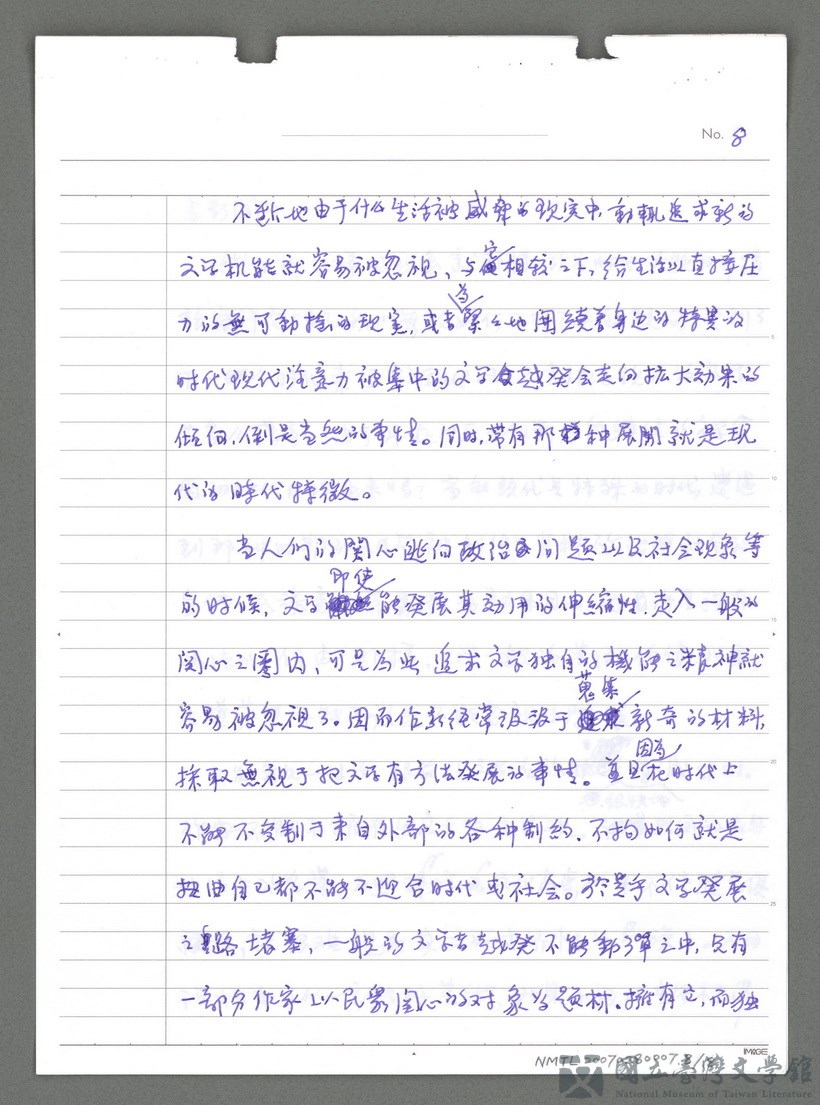 No. 8
不断地由于什么生活被威脅的现実中,動輒追求新的
文学机能就容易被忽視、与它相較之下,給生活以直接压
力的無可動搖的现実,或者為緊々地圍繞着身边的特異的
时代现代注意力被集中的文学越発会走向拡大効果的
傾向,倒是当然的事情。同时,帶有那种展開就是现
代的時代特徵。
当人们的関心逃向政治问題以及社会现象等
的时候,文学即使能発展其効用的伸縮性,走入一般的
関心之圈内,可是為此追求文学独自的機能之精神就
容易被忽視了。因而作家经常汲汲于蒐集新奇的材料,
採取無視于把文学有方法発展的事情。並且因為在时代上
不能不受制于来自外部的各种制約,不拘如何就是
扭曲自己都不能不迎合时代或社会。於是乎文学発展
之路堵塞,一般的文学者越発不能動彈之中,只有
一部分作家以民衆関心的对象为题材,擁有它,而独
IMAGE
NMTL 20070380907.8
國立臺灣文學館
National Museum of Taiwan Literature